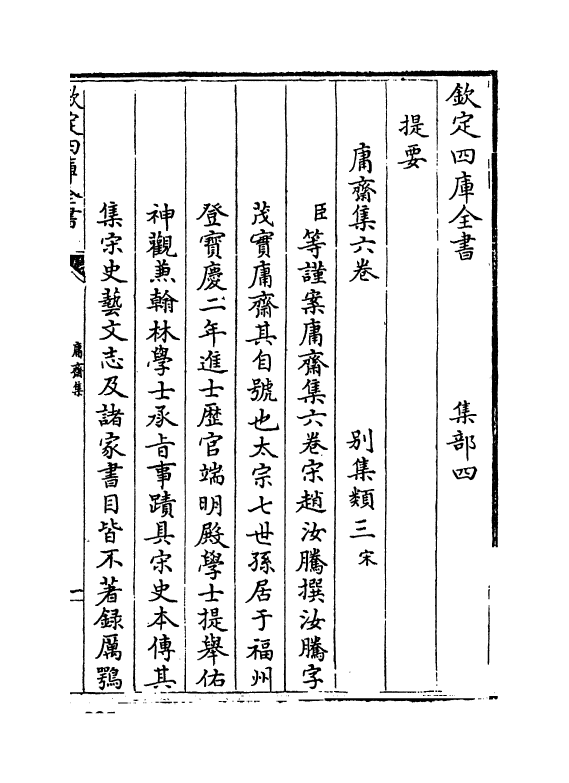 欽定四庫全書　集部四
提要
庸齋集六卷　别集類三宋
臣等謹案庸齋集六卷宋趙汝騰撰汝騰字
茂實庸齋其自號也太宗七世孫居于福州
登寶慶二年進士歷官端明殿學士提舉佑
神觀兼翰林學士承旨事蹟具宋史本傳其
集宋史藝文志及諸家書目皆不著録厲鶚
欽定四庫全書　庸齋集　一